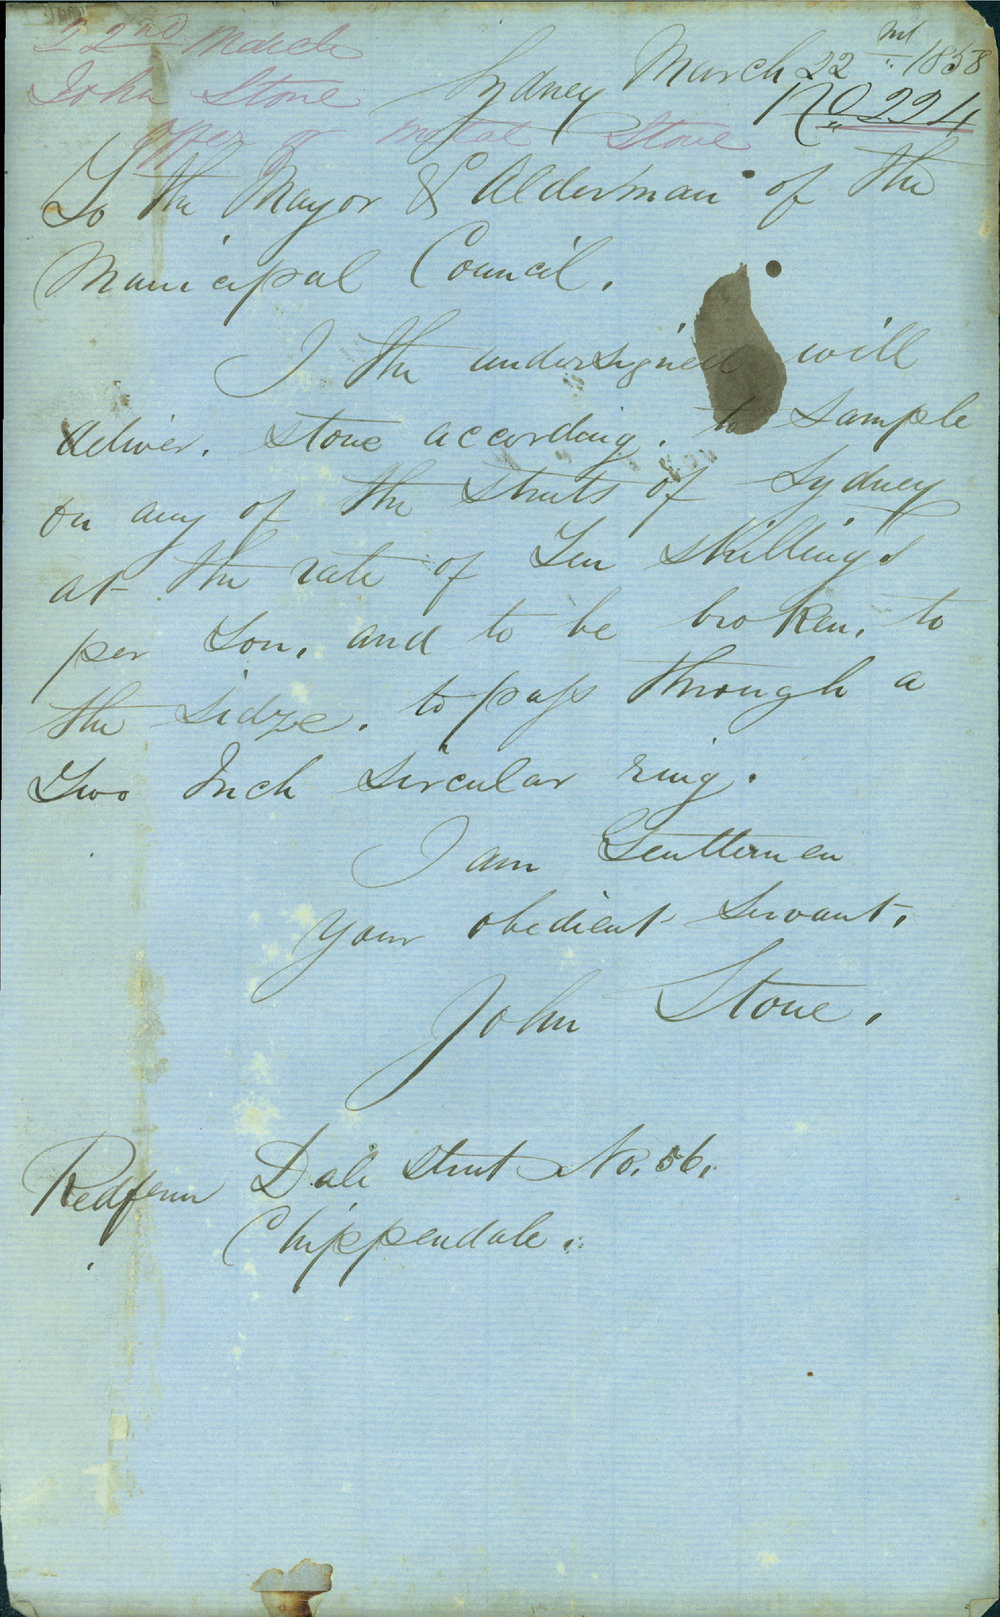 22nd March
John Stone
offer of metal Stone
Sydney March 22nd 1858
No 224
To the Mayor & Alderman of the
Municipal Council.
I the undersigned will
deliver. stone according. to Sample
on any of the Streets of Sydney
at the rate of Ten Shillings
per Ton, and to be broken, to
the sidze. to pass through a
Two Inch Sircular ring.
I am Gentlemen
your obedient Servant,
John Stone.
Redfern Dale Street No. 56.
Chippendale.